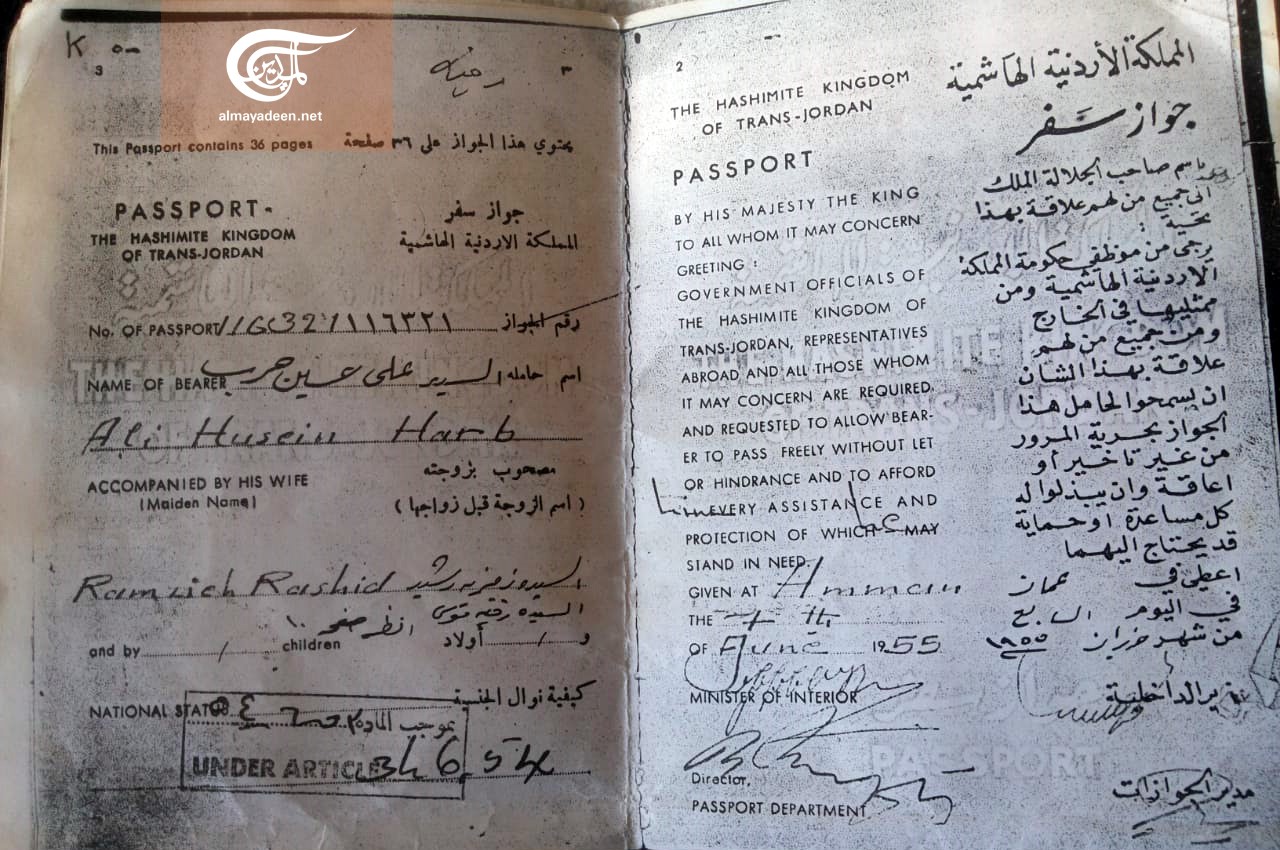 K ٥٠
3
٣
الميادين
almayadeen.net
This Passport contains 36 pages يحتوي هذا الجواز على ٣٦ صفحة
PASSORT- جواز سفر
THE HASHIMITE KINGDOM
OF TRANS-JORDAN
المملكة الاردنية الهاشمية
No. OF PASSPORT 116321 ١١٦٣٢١ رقم الجواز
NAME OF BEARER السيد علي حسين حرب اسم حامله
Ali Husein Harb
ACCOMPANIED BY HIS WIFE مصحوب بزوجته
(Maiden Name) (اسم الزوجة قبل زواجها)
Ramzieh Rashid السيدة رمزيه رشيد
السيده انظر صفحه ١٠
and by / children و / أولاد
NATIONAL STATUS كيفية نوال الجنسية
بموجب المادة
UNDER ARTICLE
2
THE HASHIMITE KINGDOM
OF TRANS-JORDAN
PASSPORT
BY HIS MAJESTY THE KING
TO ALL WHOM IT MAY CONCERN
GREETING :
GOVERNMENT OFFICIALS OF
THE HASHIMITE KINGDOM OF
TRANS-JORDAN, REPRESENTATIVES
ABROAD AND ALL THOSE WHOM
IT MAY CONCERN ARE REQUIRED
AND REQUESTED TO ALLOW BEAR-
ER TO PASS FREELY WITHOUT LET
OR HINDRANCE AND TO AFFORD
him EVERY ASSISTANCE AND
PROTECTION OF WHICH he MAY
STAND IN NEED.
GIVEN AT Amman
THE 7th
OF June 1955
MINISTER OF INTERIOR
Director,
PASSPORT DEPARTMENT
المملكة الأردنية الهاشمية
جواز سفر
باسم صاحب الجلالة الملك
الى جميع من لهم علاقة بهذا
تحية :
يرجى من موظفي حكومة المملكة
الاردنية الهاشمية ومن
ممثليها في الخارج
ومن جميع من لهم
علاقة بهذا الشان
ان يسمحوا لحامل هذا
الجواز بحرية المرور
من غير تاخير أو
اعاقة وان يبذلوا له
كل مساعدة او حماية
قد يحتاج اليهما
اعطي في عمان
في اليوم السابع
من شهر حزيران ١٩٥٥
وزير الداخلية
مدير الجوازات